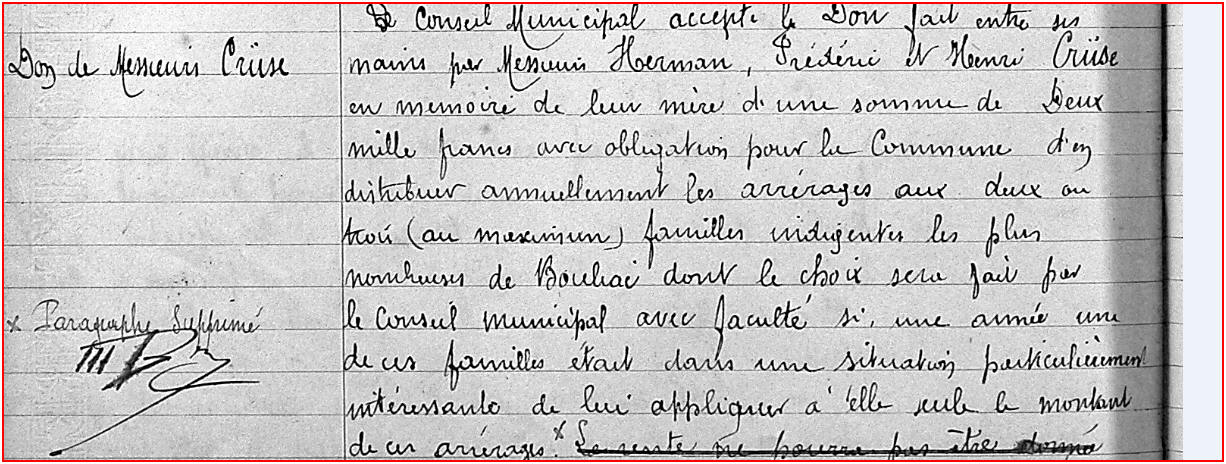 Don de Messieurs Crüse
Le Conseil Municipal accepte le Don fait entre ses
mains par Messieurs Herman, Frédéric et Henri Crüse
en mémoire de leur mère d'une somme de Deux
mille francs avec obligation pour la Commune d'en
distribuer annuellement les arrérages aux deux ou
trois (au maximum) familles indigentes les plus
nombreuses de Bouliac dont le choix sera fait par
le Conseil municipal avec faculté si, une année une
de ces familles était dans une situation particulièrement
intéressante de lui appliquer à elle seule le montant
de ces arrérages. x La rente ne pourra pas être donné
x Paragraphe Supprimé